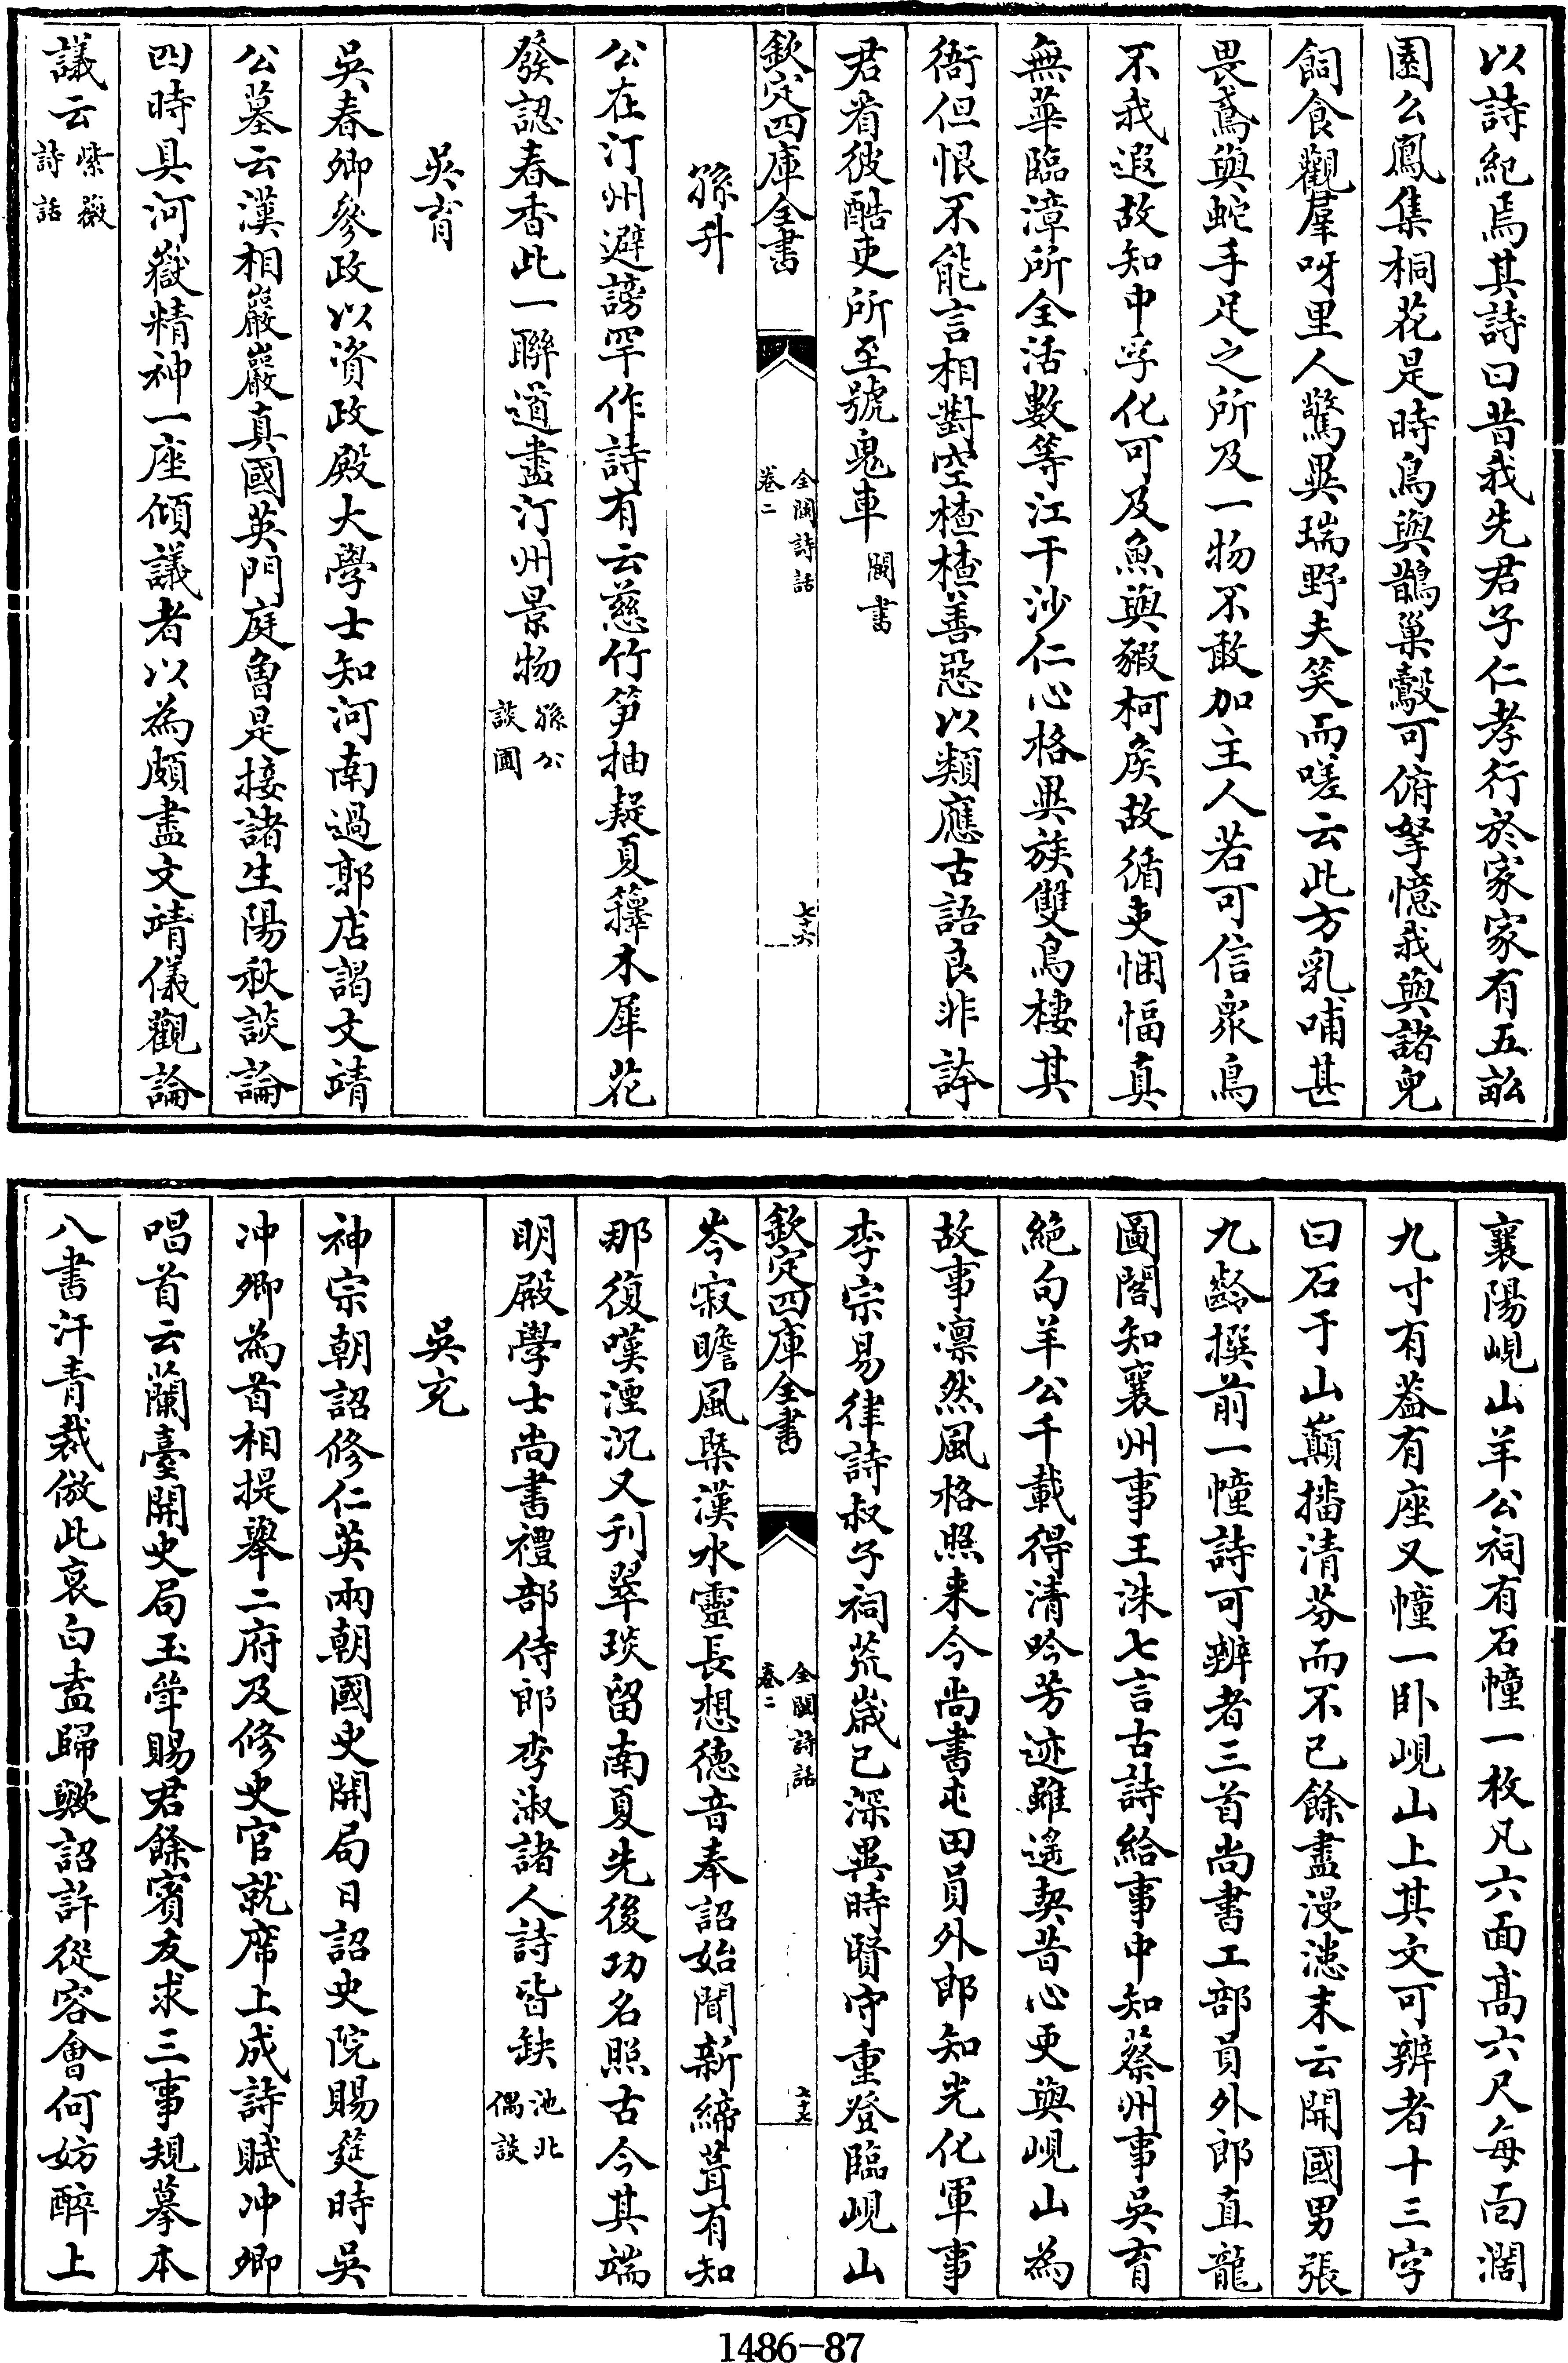 以詩紀焉其詩曰昔我先君子仁孝行於家家有五畝
園么鳳集桐花是時鳥與鵲巢鷇可俯拏憶我與諸兒
飼食觀羣呀里人驚異瑞野夫笑而嗟云此方乳哺甚
畏鳶與蛇手足之所及一物不敢加主人若可信衆鳥
不我遐故知中孚化可及魚與豭柯侯故循吏悃愊真
無華臨漳所全活數等江干沙仁心格異族雙鳥棲其
衙但恨不能言相對空楂楂善惡以類應古語良非誇
君看彼酷吏所至號鬼車 閩書
欽定四庫全書 全閩詩話 卷二 七十六
孫升
公在汀州避謗罕作詩有云慈竹笋抽疑夏籜木犀花
發認春香此一聯道盡汀州景物 孫公談圃
吳育
吳春卿參政以資政殿大學士知河南過郭店謁文靖
公墓云漢相巖巖真國英門庭曾是接諸生陽秋談論
四時具河嶽精神一座傾議者以為頗盡文靖儀觀論
議云 紫薇詩話
襄陽峴山羊公祠有石幢一枚凡六面高六尺每面濶
九寸有葢有座又幢一卧峴山上其文可辨者十三字
曰石于山巔播清芬而不已餘盡漫漶末云開國男張
九齡撰前一幢詩可辨者三首尚書工部員外郎直龍
圖閣知襄州事王洙七言古詩給事中知蔡州事吳育
絶句羊公千載得清吟芳迹雖遙契昔心更與峴山為
故事凛然風格照来今尚書屯田員外郎知光化軍事
李宗易律詩叔子祠荒歲已深異時賢守重登臨峴山
欽定四庫全書 全閩詩話 卷二 七十七
岑寂瞻風槩漢水靈長想德音奉詔始聞新締葺有知
那復嘆湮沉又刋翠琰留南夏先後功名照古今其端
明殿學士尚書禮部侍郎李淑諸人詩皆缺 池北偶談
吳充
神宗朝詔修仁英兩朝國史開局日詔史院賜筵時吳
冲卿為首相提舉二府及修史官就席上成詩賦冲卿
唱首云蘭臺開史局玉斝賜君餘賓友求三事規摹本
八書汗青裁倣此裒白盍歸歟詔許從容會何妨醉上
1486-87